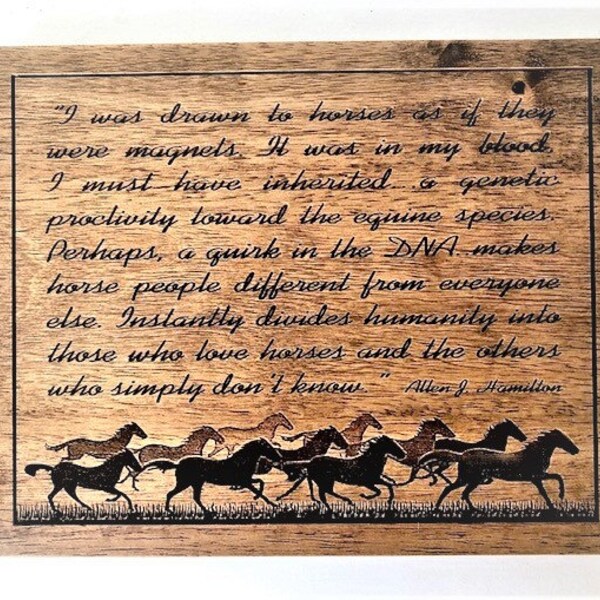 "I was drawn to horses as if they
were magnets. It was in my blood.
I must have inherited a genetic
proctivity toward the equine species.
Perhaps, a quirk in the DNA makes
horse people different from everyone
else. Instantly divides humanity into
those who love horses and the others
who simply don't know." Allen J. Hamilton